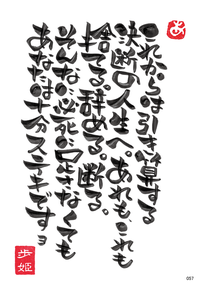 あ
これからは引き算する
決断の人生へ。あれも、これも
捨てる。辞める。断る。
そんなに必死にならなくても
あなたは十分ステキですョ
歩姫
057